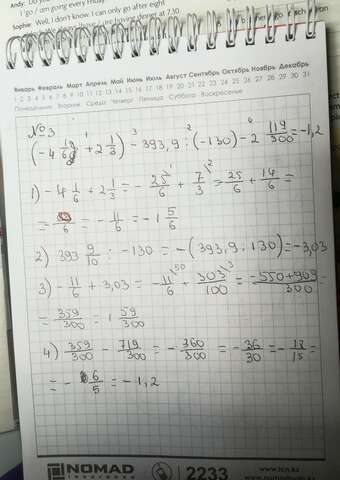 Andy:
I go / am going every Friday
Sophie: Well, I don't know. I can only go after eight
are having dinner at 7.30.
Январь Февраль Март Апрель Май Июнь Июль Август Сентябрь Октябрь Ноябрь Декабрь
1 2 3 4 5 6 7 8 9 10 11 12 13 14 15 16 17 18 19 20 21 22 23 24 25 26 27 28 29 30 31
Понедельник Вторник Среда Четверг Пятница Суббота Воскресенье
№3
(-4 1/6 + 2 1/3) - 393,9 : (-130) - 2 119/300 = -1,2
1) -4 1/6 + 2 1/3 = - 25/6 + 7/3 = 25/6 + 14/6 =
= - 11/6 = -1 5/6
2) 393 9/10 : -130 = -(393,9 : 130) = -3,03
3) - 11/6 + 3,03 = - 11/6 + 303/100 = -550+909/300 =
= 359/300 = 1 59/300
4) 359/300 - 719/300 = - 360/300 = - 36/30 = - 18/15 =
= - 6/5 = -1,2
NOMAD
insurance
2233
www.nomad.kz